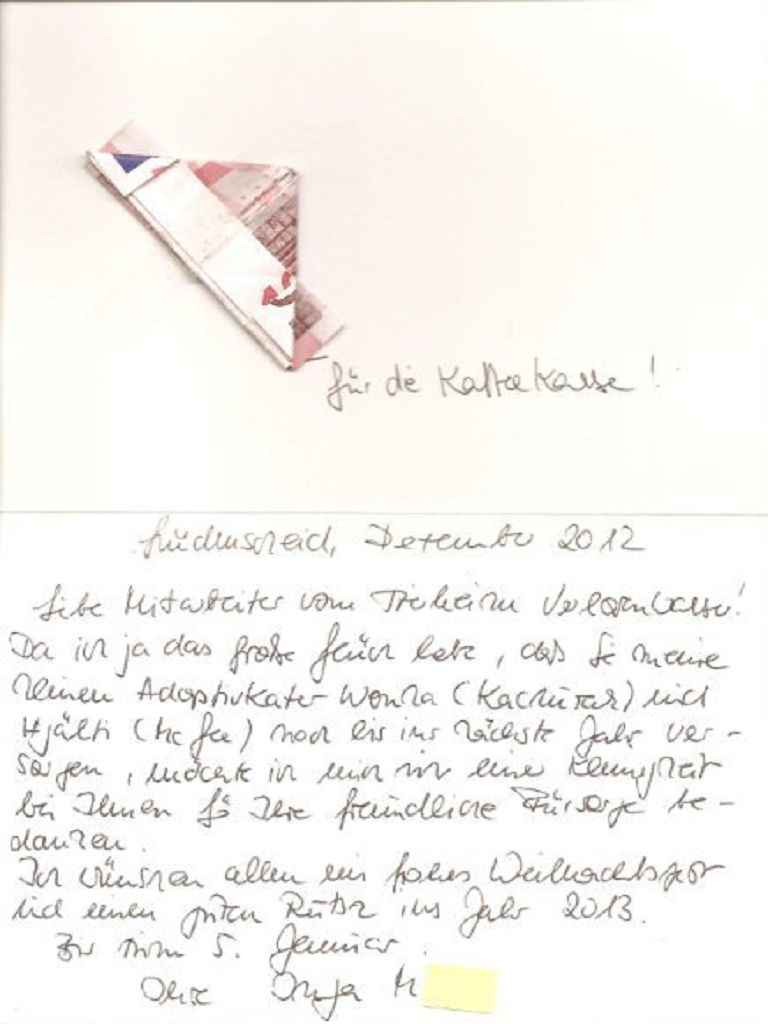 für die Kaffeekasse!
Lüdenscheid, Dezember 2012
Liebe Mitarbeiter vom Tierheim
Da ich ja das große Glück habe, daß Sie meine
kleinen Adoptivkater Wonka (Kachura) und
Hjälti (McGee) noch bis ins nächste Jahr ver-
sorgen, möchte ich mich mit einer Kleinigkeit
bei Ihnen für Ihre freundliche Fürsorge be-
danken.
Ich wünsche allen ein frohes Weihnachtsfest
und einen guten Rutsch ins Jahr 2013.
Bis zum 5. Januar.
Ihre M